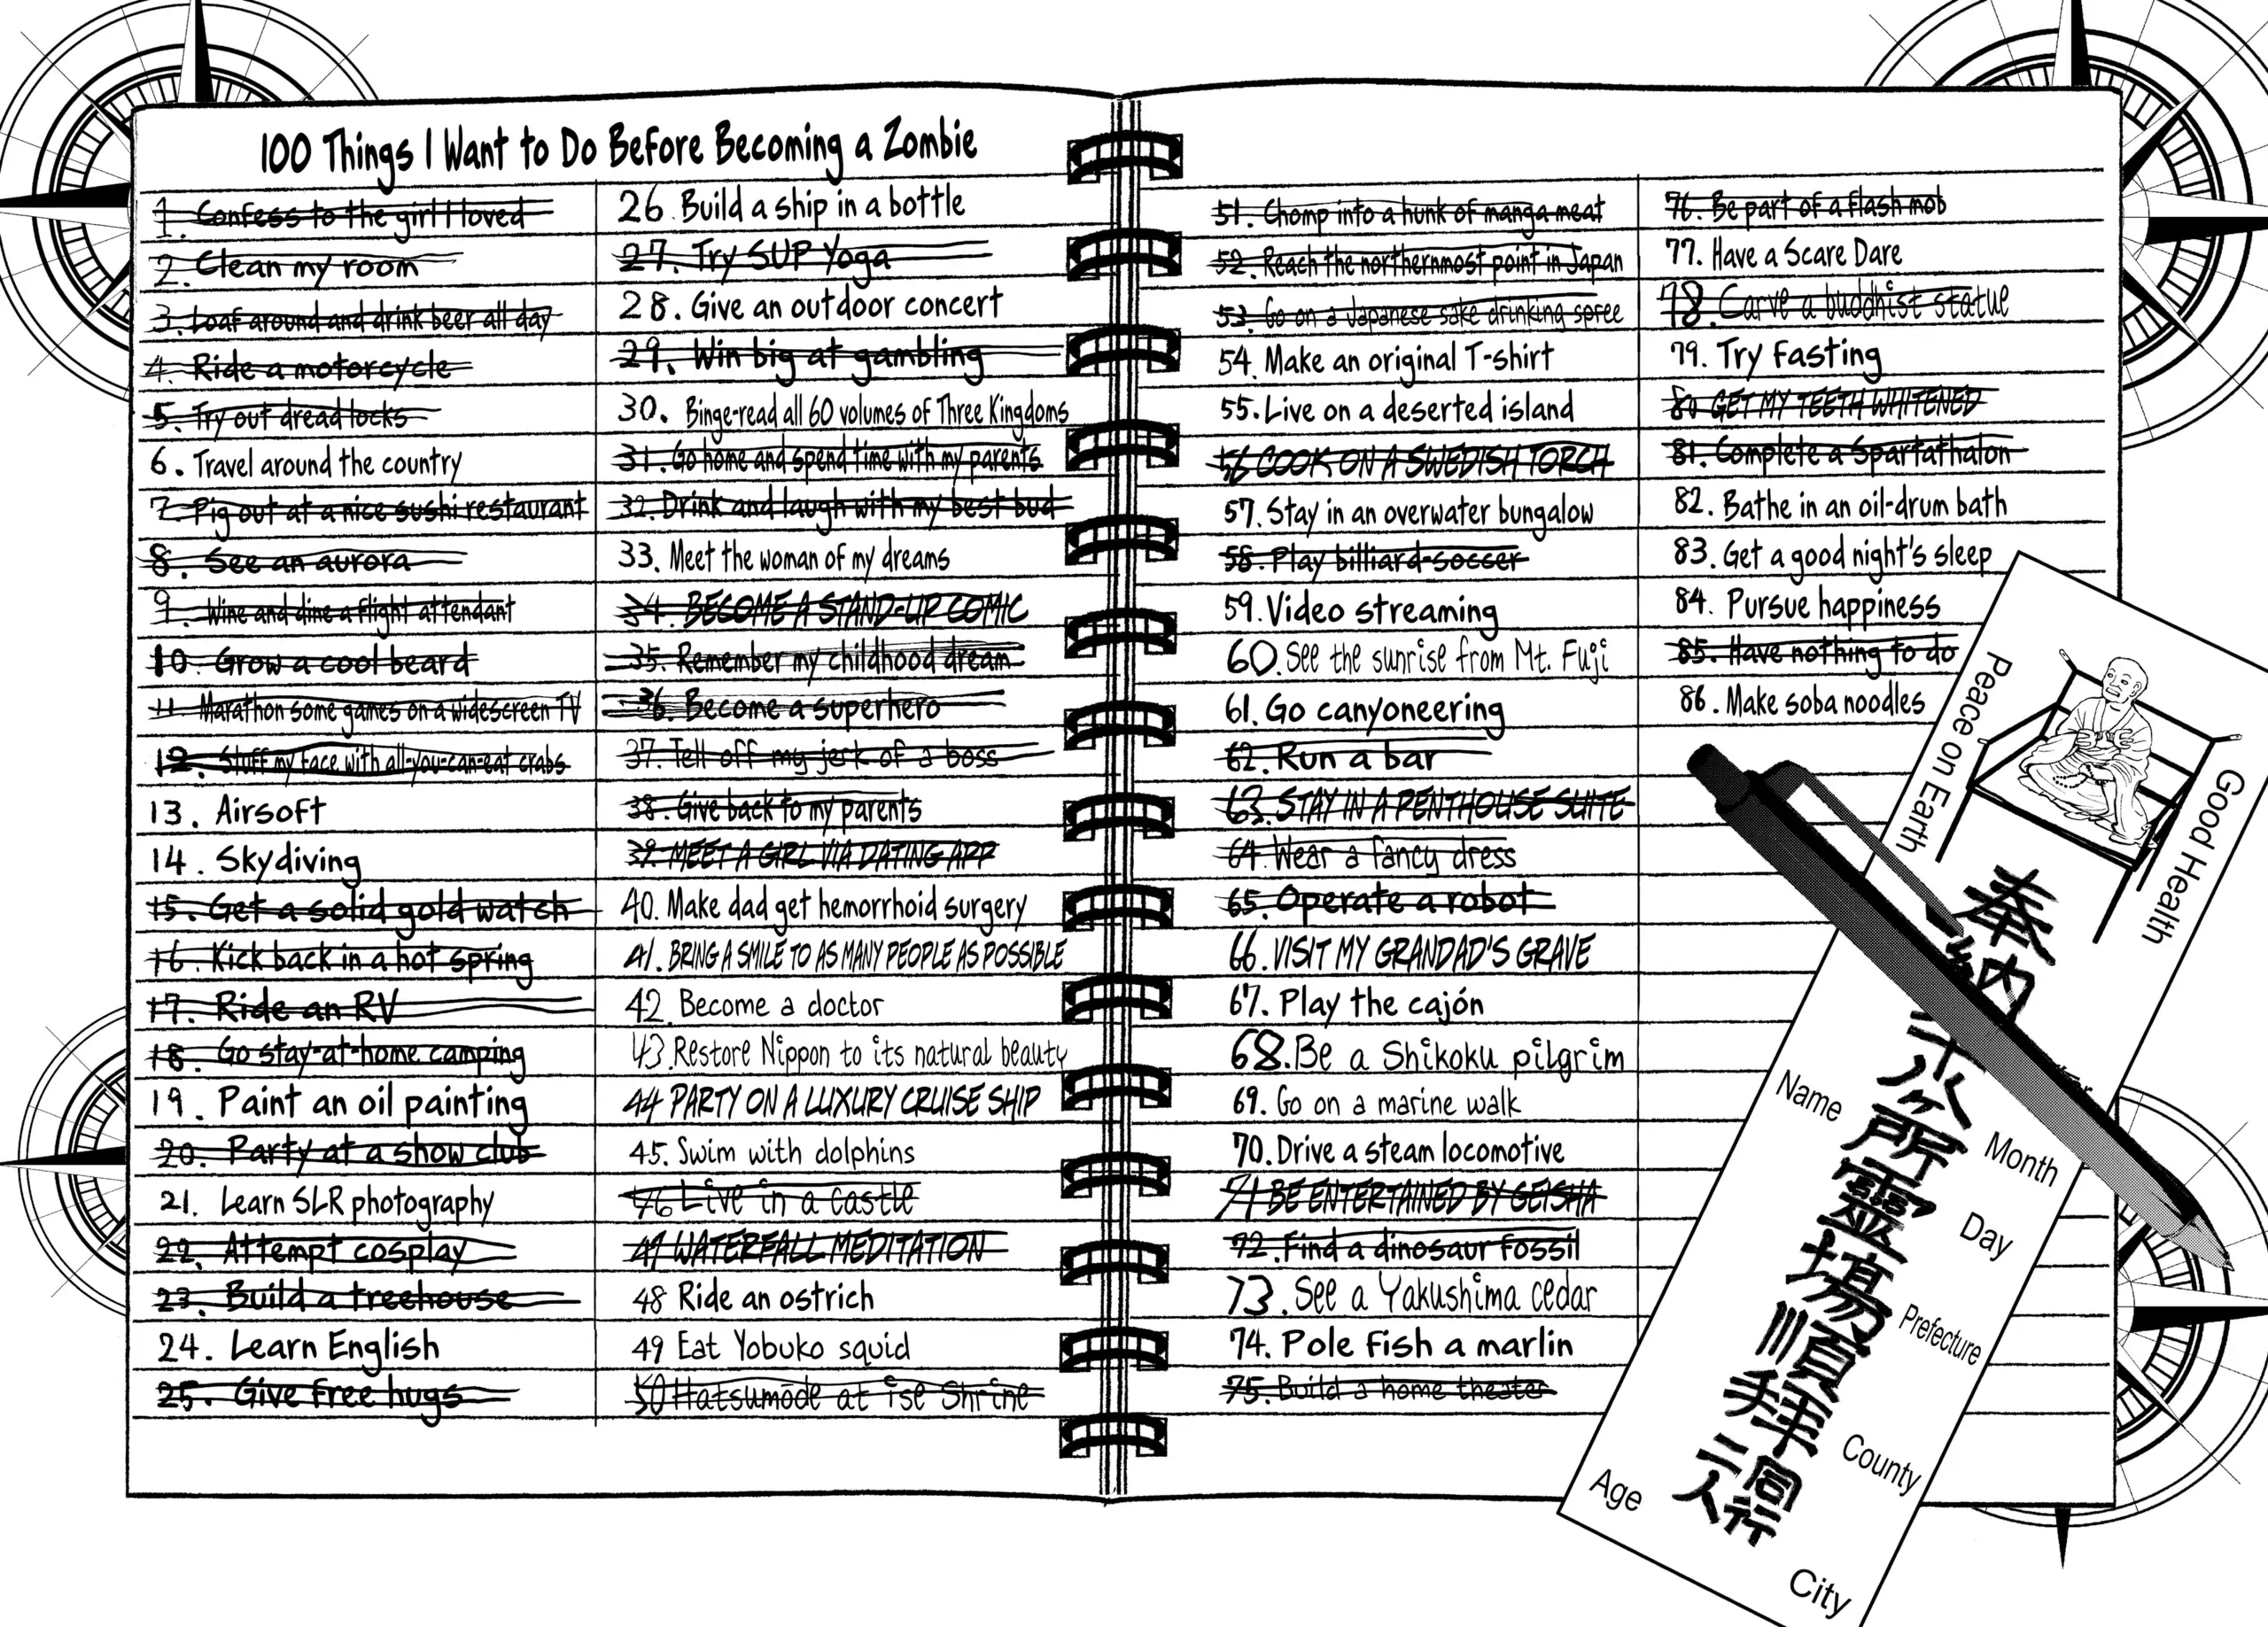 100 Things I Want to Do Before Becoming a Zombie
1. Confess to the girl I loved
2. Clean my room
3. Loaf around and drink beer all day
4. Ride a motorcycle
5. Try out dreadlocks
6. Travel around the country
7. Pig out at a nice sushi restaurant
8. See an aurora
9. Wine and dine a flight attendant
10. Grow a cool beard
11. Marathon some games on a widescreen TV
12. Stuff my face with all-you-can-eat crabs
13. Airsoft
14. Skydiving
15. Get a solid gold watch
16. Kick back in a hot spring
17. Ride an RV
18. Go stay-at-home camping
19. Paint an oil painting
20. Party at a show club
21. Learn SLR photography
22. Attempt cosplay
23. Build a treehouse
24. Learn English
25. Give free hugs
26. Build a ship in a bottle
27. Try SUP Yoga
28. Give an outdoor concert
29. Win big at gambling
30. Binge-read all 60 volumes of Three Kingdoms
31. Go home and spend time with my parents
32. Drink and laugh with my best bud
33. Meet the woman of my dreams
34. BECOME A STAND-UP COMIC
35. Remember my childhood dream
36. Become a superhero
37. Tell off my jerk of a boss
38. Give back to my parents
39. MEET A GIRL VIA DATING APP
40. Make dad get hemorrhoid surgery
41. BRING A SMILE TO AS MANY PEOPLE AS POSSIBLE
42. Become a doctor
43. Restore Nippon to its natural beauty
44 PARTY ON A LUXURY CRUISE SHIP
45. Swim with dolphins
46 Live in a castle
47 WATERFALL MEDITATION
48 Ride an ostrich
49 Eat Yobuko squid
50 Hatsumōde at Ise Shrine
51. Chomp into a hunk of manga meat
52. Reach the northernmost point in Japan
53. Go on a Japanese sake drinking spree
54. Make an original T-shirt
55. Live on a deserted island
56 COOK ON A SWEDISH TORCH
57. Stay in an overwater bungalow
58. Play billiard-soccer
59. Video streaming
60. See the sunrise from Mt. Fuji
61. Go canyoneering
62. Run a bar
63. STAY IN A PENTHOUSE SUITE
64. Wear a fancy dress
65. Operate a robot
66. VISIT MY GRANDAD'S GRAVE
67. Play the cajón
68. Be a Shikoku pilgrim
69. Go on a marine walk
70. Drive a steam locomotive
71 BE ENTERTAINED BY GEISHA
72. Find a dinosaur fossil
73. See a Yakushima cedar
74. Pole fish a marlin
75. Build a home theater
76. Be part of a flash mob
77. Have a Scare Dare
78. Carve a buddhist statue
79. Try fasting
80 GET MY TEETH WHITENED
81. Complete a Spartathalon
82. Bathe in an oil-drum bath
83. Get a good night's sleep
84. Pursue happiness
85. Have nothing to do
86. Make soba noodles
Peace on Earth
Good Health
奉納
ヶ所靈場順拝
同行二人
Name
Month
Day
Prefecture
County
Age
City